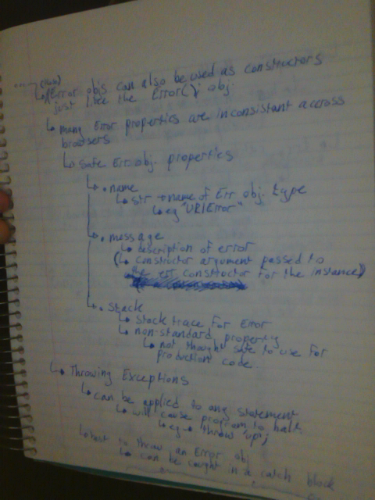 ↳ Error objs can also be used as constructors
just like the Error(); obj
↳ many Error properties are inconsistant across
browsers
↳ safe Err. obj. properties
↳ .name
↳ str → name of Err obj. type
↳ eg "URIError"
↳ .message
↳ description of error
(↳ constructor argument passed to
constructor for the instance)
↳ .stack
↳ stack trace for Error
↳ non-standard property
↳ not thought safe to use for
production code
↳ Throwing Exceptions
↳ can be applied to any statement
↳ will cause program to halt
↳ eg → throw up;
↳ best to throw an Error obj
↳ can be caught in a catch block